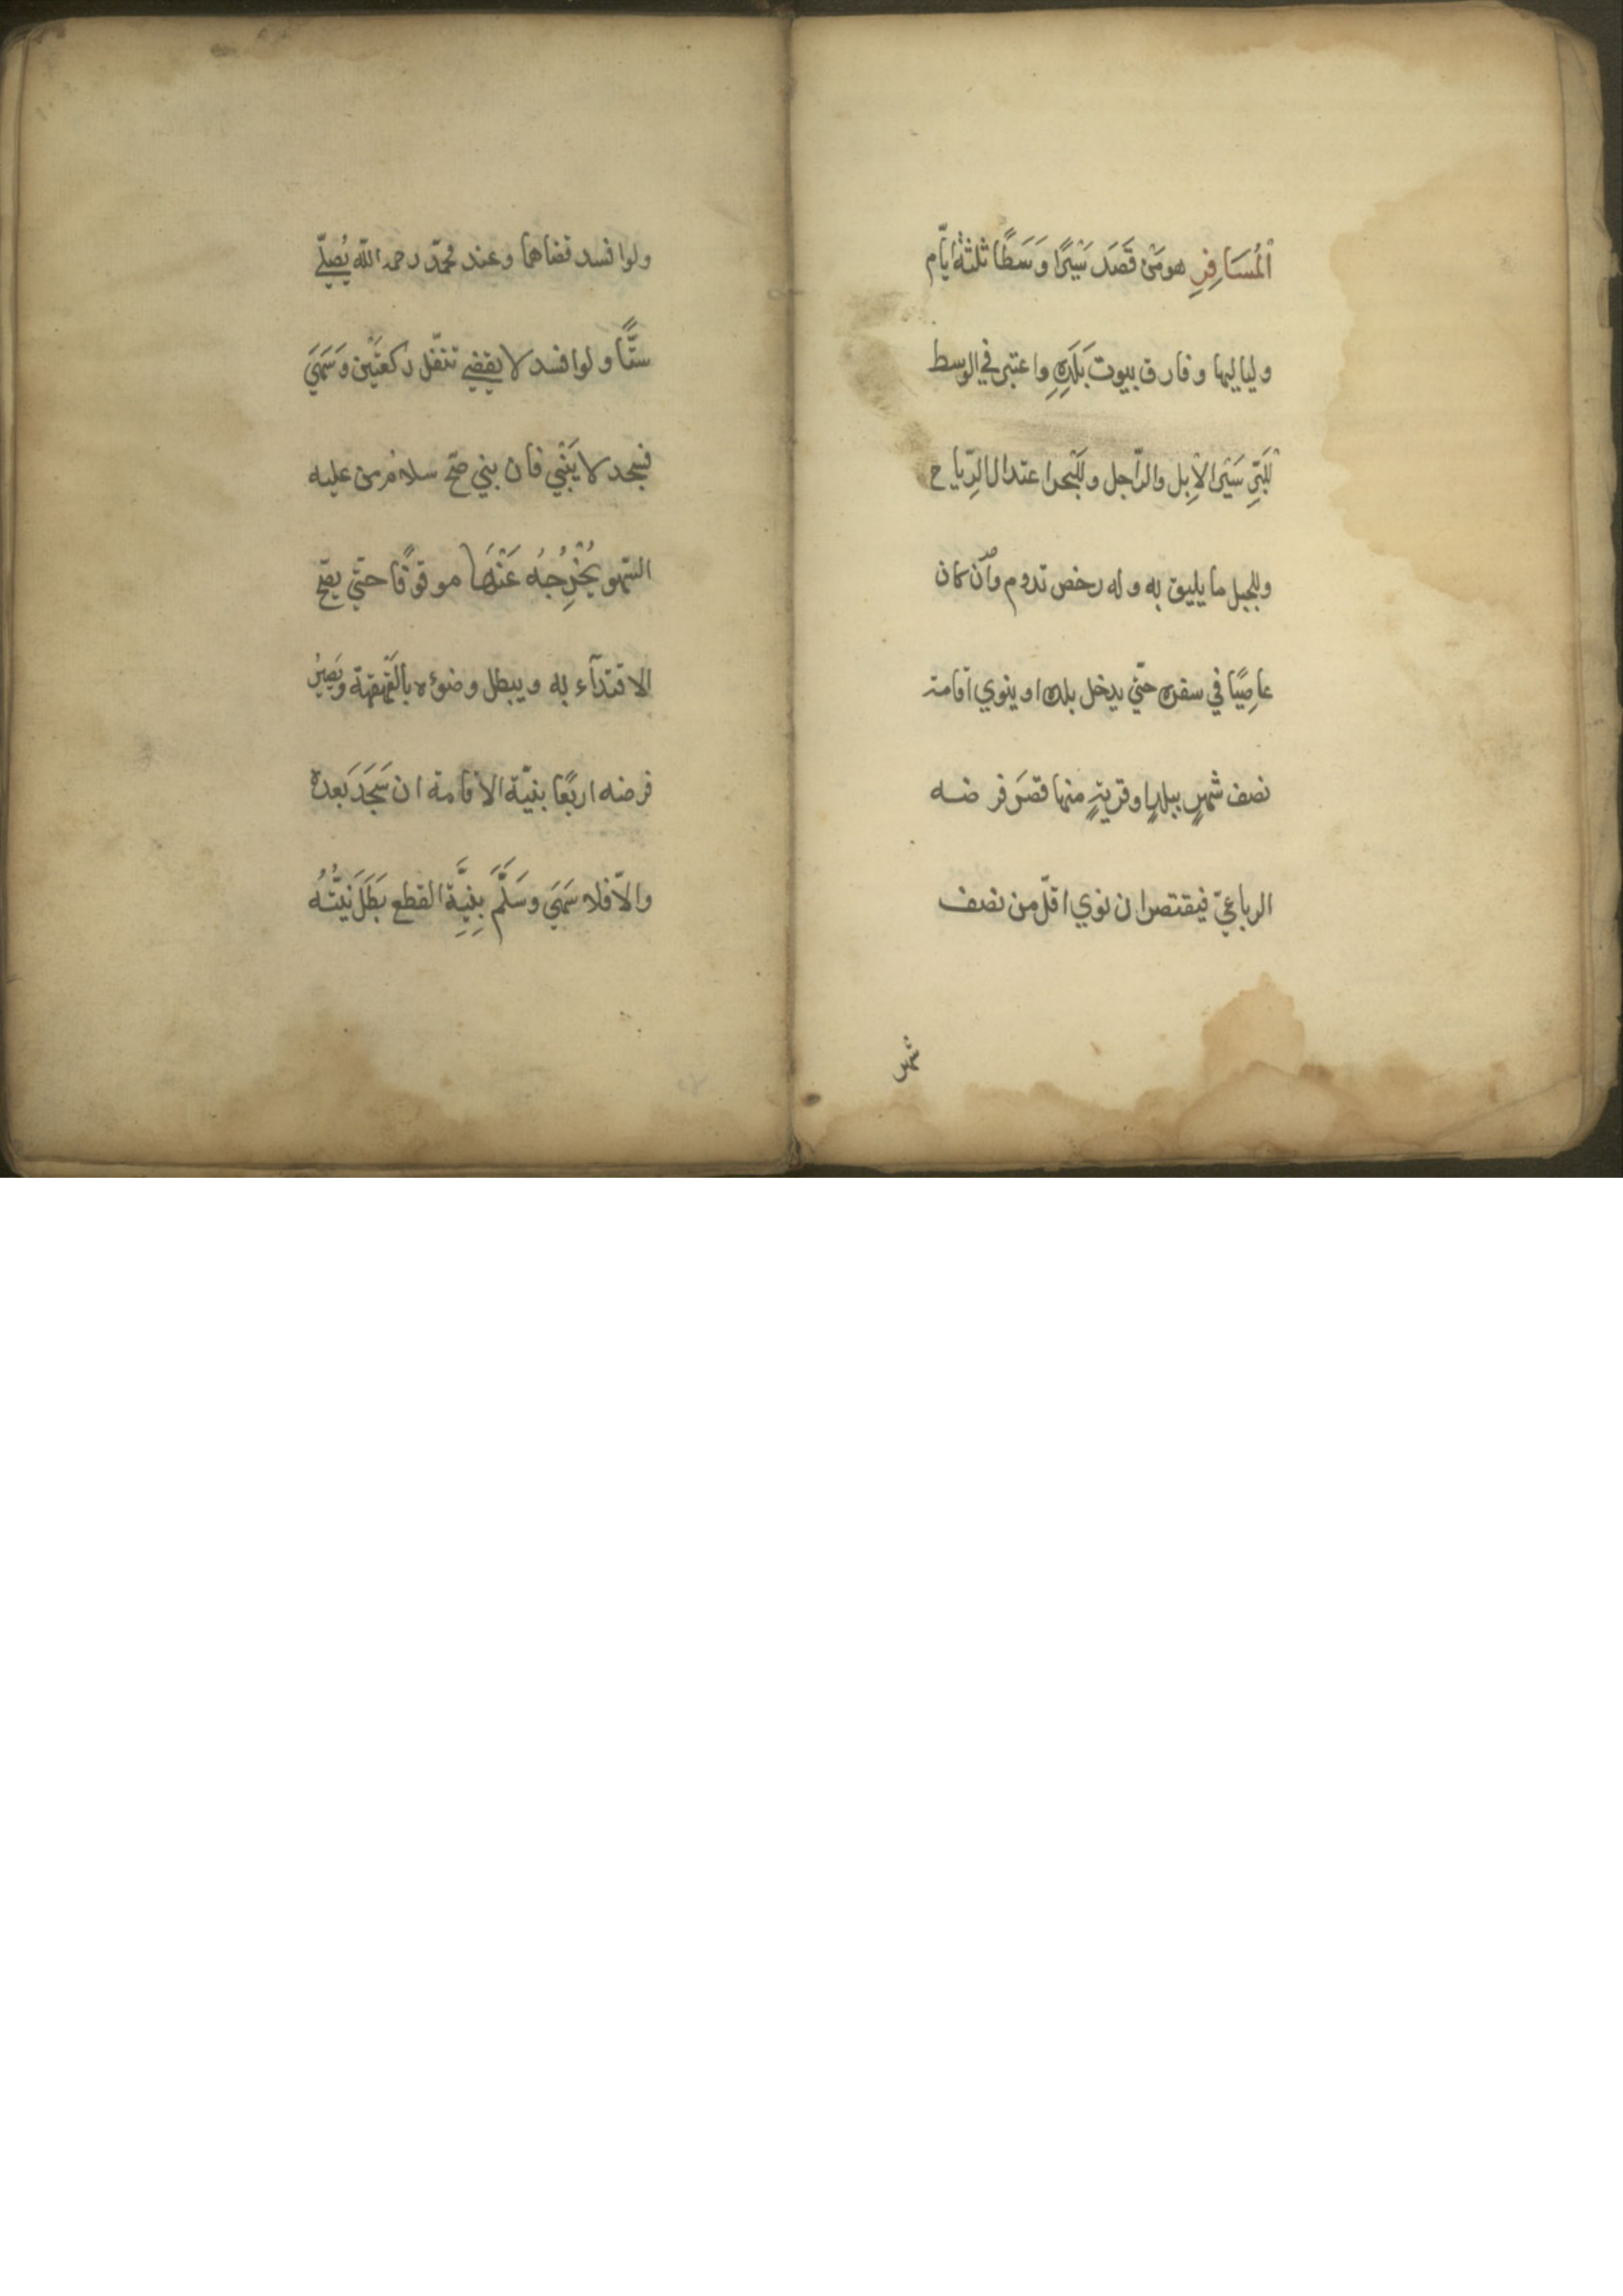 اْلمُسَافِرِ هو مَنْ قَصَدَ سَيْرًا وَسَطًا ثلثةَ ايّام
ولياليها وفارق بيوت بَلَدِهِ واعتبر في الوسط
لْلبَرِّ سَيْرُ الْاِبل والرّاجل وللْبَحر اعتدال الرِّياح
وللجبل ما يليق به وله رخص تدوم وأن كان
عاصِيًا في سفره حتّي يدخل بلده او ينوي اقامة
نصف شهرٍ ببلدٍ او قريةٍ منها قصَر فرضه
الرباعيّ فيقتصر ان نوي اقلّ من نصف
شهر
ولو افسد قضاهما وعند محمّد رحمه اللّه يُصلّي
ستًّا ولو افسد لا يقضي تنفّل ركعتَيْن وَسَهَي
فسجد لا يَبْنِي فان بني صَحّ سلامُ من عليه
السّهو يُخْرِجُهُ عَنْهَا موقوفًا حتّي يصّح
الاقتدآء به ويبطل وضوءه بالقَهْقهة وَيَصِيرُ
فرضه اربعًا بنيّة الاقامة ان سَجَدَ بَعده
والاّ فلا سَهَي وسَلَّمَ بِنِيَّةِ القطع بَطَلَ نيّتُهُ